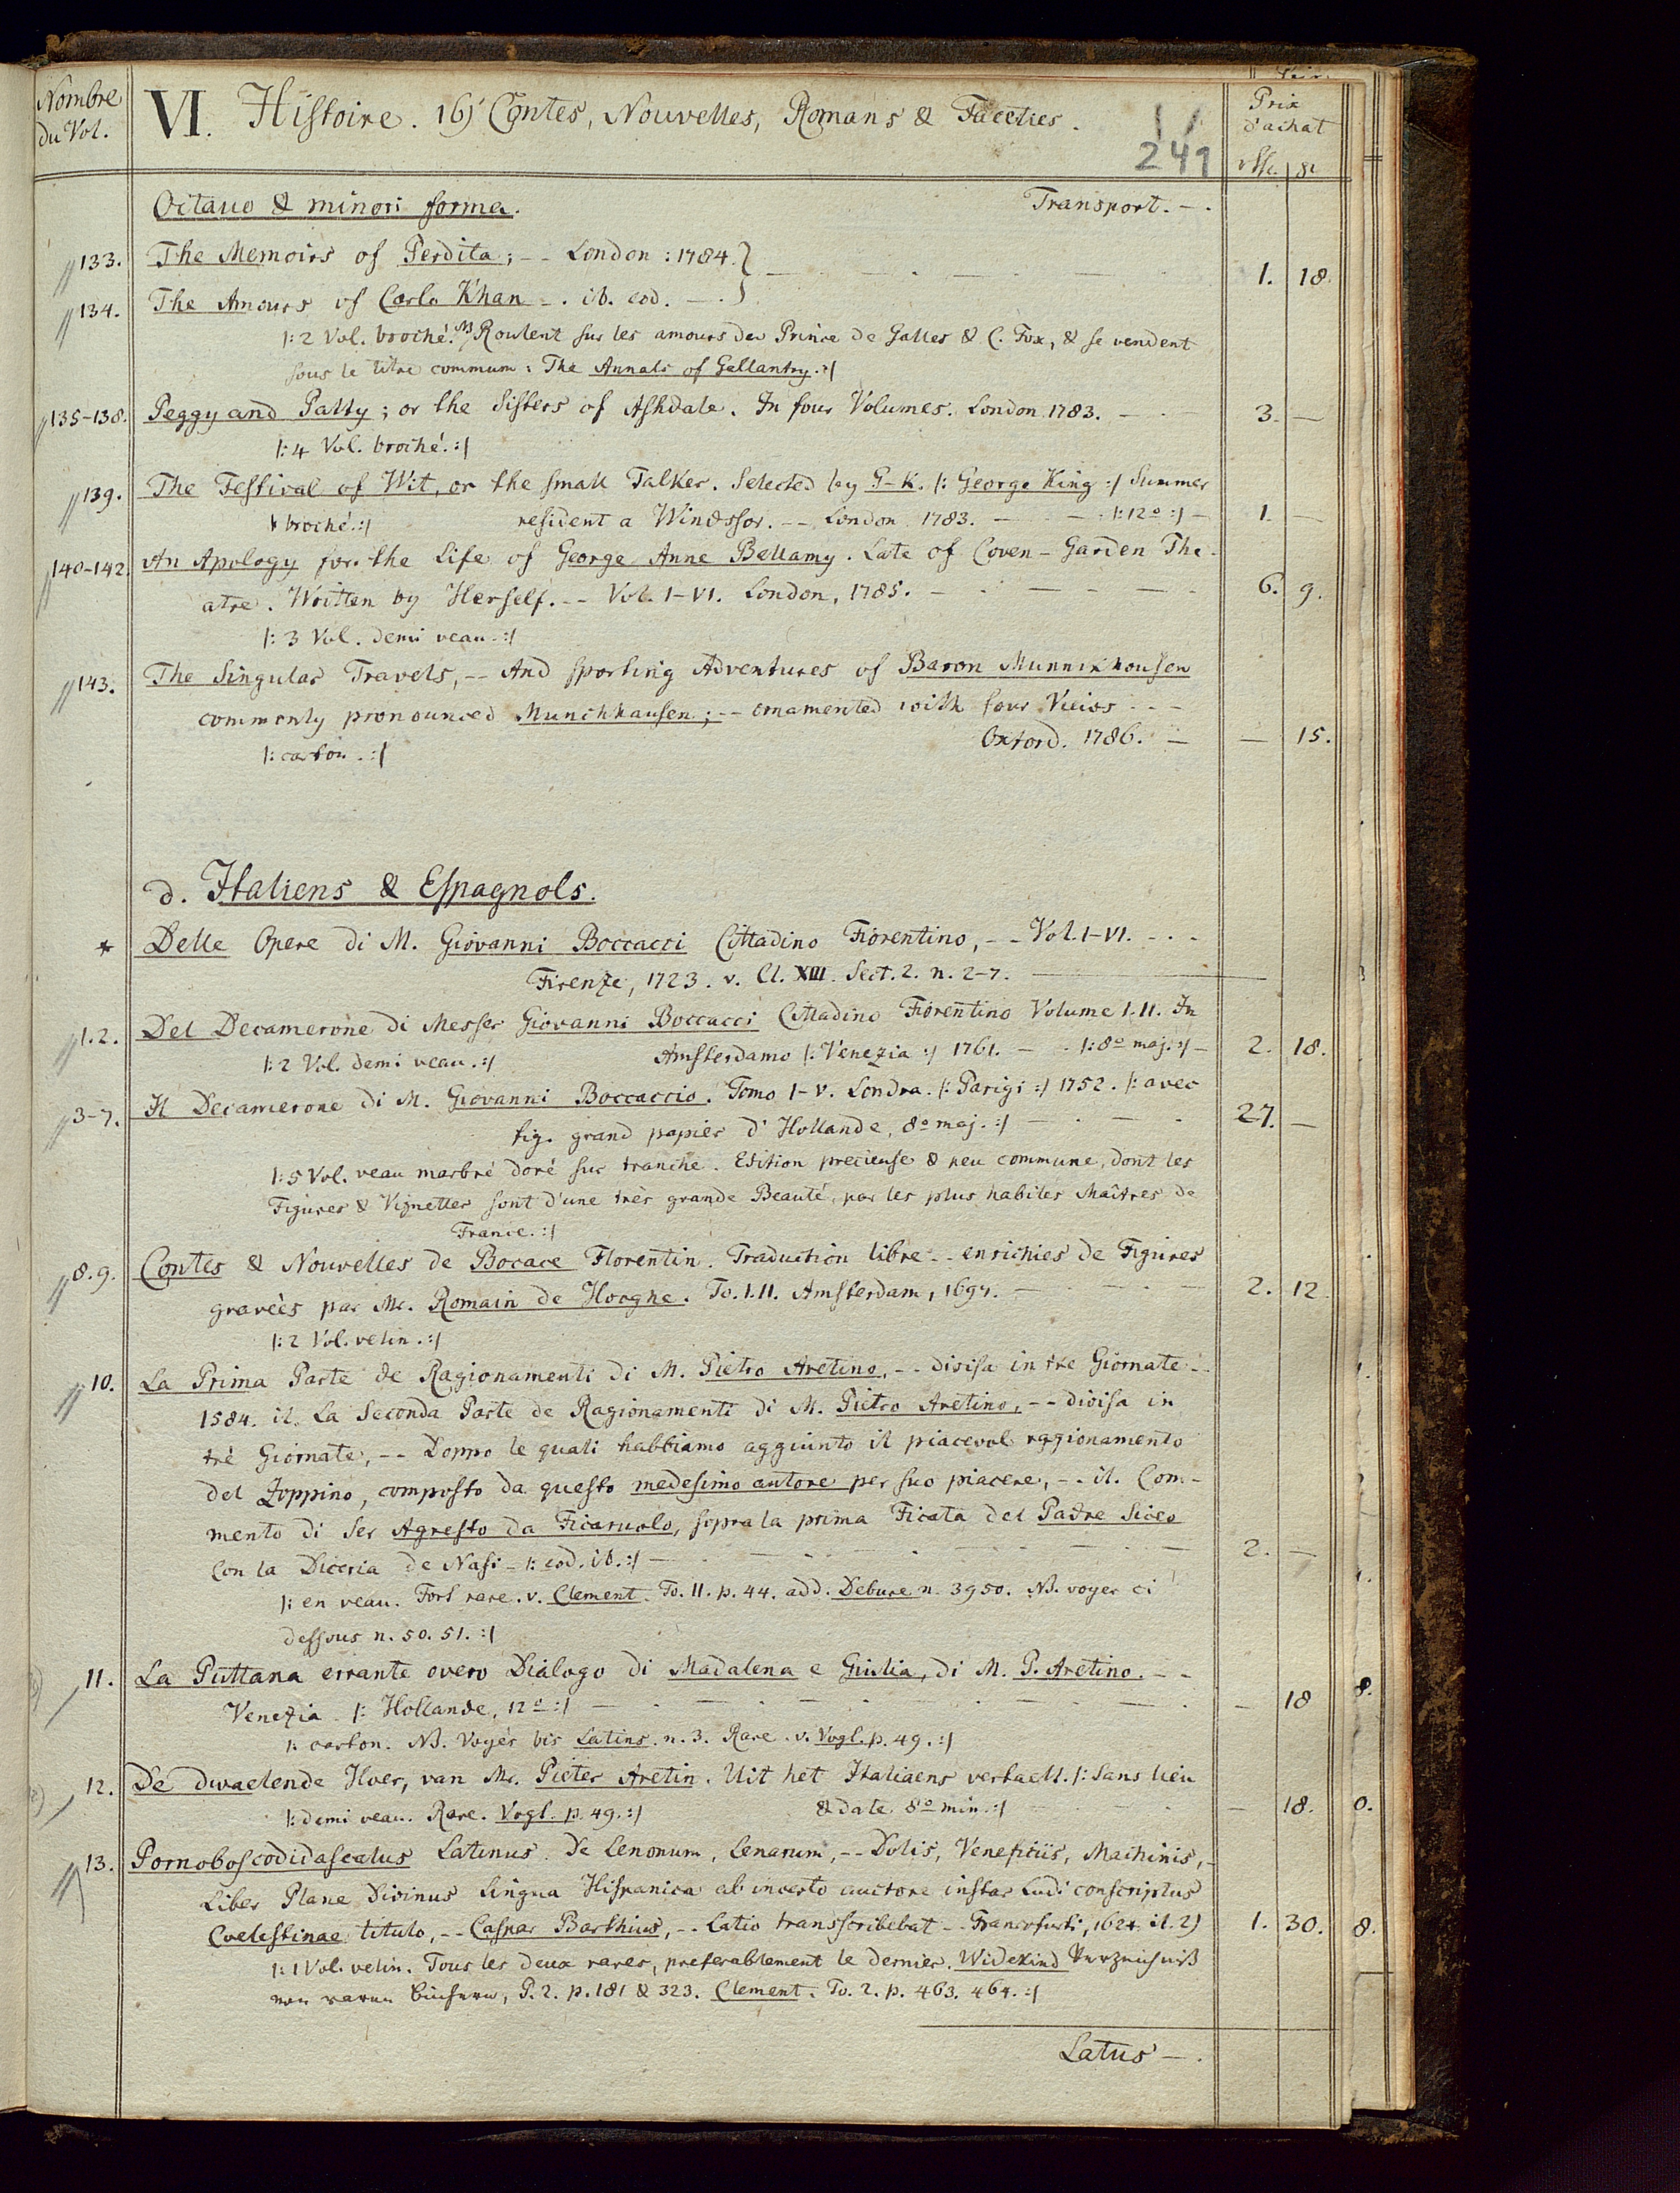 Nombre
du Vol.
VI. Histoire. 16) Contes, Nouvelles, Romans & Faceties.
241
Prix
d'achat
Octavo & minori forma. Transport. - .
133. The Memoirs of Perdita; -- London: 1784. } 1. 18.
134. The Amours of Carlo Khan -. ib. eod. - .
|: 2 Vol. broché. NB Roulent sur les amours du Prince de Galles & C. Fox, & se vendent
sous le titre commun: The Annals of Gallantry. :|
135-138. Peggy and Patty; or the Sisters of Ashdale. In four Volumes. London 1783. - - 3. -
|: 4 Vol. broché. :|
139. The Festival of Wit, or the small Talker. Selected by G-K. |: George King :| Summer
broché. :| resident a Windssor. -- London 1783. - - |: 12º :| - 1. -
140-142. An Apology for the Life of George Anne Bellamy. Late of Coven-Garden The-
atre. Written by Herself. -- Vol. I-VI. London, 1785. - - - - 6. 9.
|: 3 Vol. demi veau. :|
143. The Singular Travels, -- And sporting Adventures of Baron Munnikhousen
commonly pronounced Munchhausen; -- ornamented with four Vieios - - -
|: carton. :| Oxford. 1786. - - 15.
d. Italiens & Espagnols.
* Delle Opere di M. Giovanni Boccacci Cittadino Fiorentino, -- Vol. I-VI. - - -
Firenze, 1723. v. Cl. XIII. Sect. 2. n. 2-7.
1.2. Del Decamerone di Messer Giovanni Boccacci Cittadino Fiorentino Volume I. II. In
|: 2 Vol. demi veau. :| Amsterdamo |: Venezia :| 1761. - - |: 8º maj. :| - 2. 18.
3-7. Il Decamerone di M. Giovanni Boccaccio. Tomo I-V. Londra. |: Parigi :| 1752. |: avec
fig. grand papier d'Hollande, 8º maj. :| - - - - 27. -
|: 5 Vol. veau marbré doré sur tranche. Edition precieuse & peu commune, dont les
Figures & Vignettes sont d'une très grande Beauté, par les plus habiles Maîtres de
France. :|
8.9. Contes & Nouvelles de Bocace Florentin. Traduction libre -- enrichies de Figures
gravèes par Mr. Romain de Hooghe. To. I. II. Amsterdam, 1697. - - - - 2. 12.
|: 2 Vol. velin. :|
10. La Prima Parte de Ragionamenti di M. Pietro Aretino, -- divisa in tre Giornate --
1584. it. La Seconda Parte de Ragionamenti di M. Pietro Aretino, -- divisa in
trè Giornate, -- Doppo le quali habbiamo aggiunto il piacevol ragionamento
del Zoppino, composto da questo medesimo autore per suo piacere, -- it. Com-
mento di Ser Agresto da Ficaruolo, sopra la prima Ficata del Padre Siceo
Con la Diceria de Nasi - |: eod. ib. :| - - - - - 2. -
|: en veau. Fort rare. v. Clement. To. II. p. 44. add. Debure n. 3950. NB. voyez ci
dessous n. 50. 51. :|
11. La Puttana errante overo Dialogo di Madalena e Giulia, di M. P. Aretino. - -
Venezia. |: Hollande, 12º :| - - - - - - 18
|: carton. NB. Voyés bis Latins. n. 3. Rare. v. Vogl. p. 49. :|
12. De dwaelende Hoer, van Mr. Pieter Aretin. Uit het Italiaens vertaelt. |: Sans lieu
|: demi veau. Rare. Vogl. p. 49. :| & date 8º min. :| - - - - 18.
13. Pornoboscodidascalus Latinus. De Lenonum, Lenarum, -- Dolis, Veneficiis, Machinis, -
Liber Plane Divinus Lingua Hispanica ab incerto auctore instar Ludi conscriptus
Coelestinae titulo, -- Caspar Barthius, -- Latio transscribebat -- Francofurti, 1624 it. 2) 1. 30.
|: 1 Vol. velin. Tous les deux rares, preferablement le dernier. Widekind Verzeichniß
von raren Büchern, P. 2. p. 181 & 323. Clement. To. 2. p. 463. 464. :|
Latus - .
8.
0.
8.